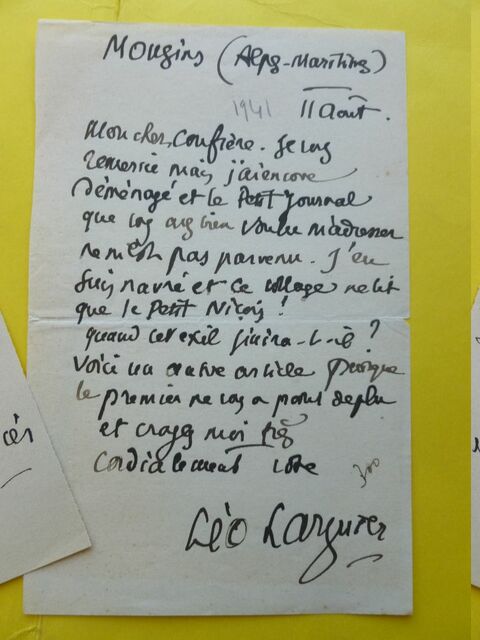 Mougins (Alpes-Maritimes)
1941 11 Août.
Mon cher Confrère. Je vous
remercie mais j'ai encore
déménagé et le Petit Journal
que vous avez bien voulu m'adresser
ne m'est pas parvenu. J'en
suis navré et ce village ne lit
que le Petit Niçois !
quand cet exil finira-t-il ?
Voici un autre article puisque
le premier ne vous a point déplu
et croyez moi très
Cordialement votre
300
Léo Larguier